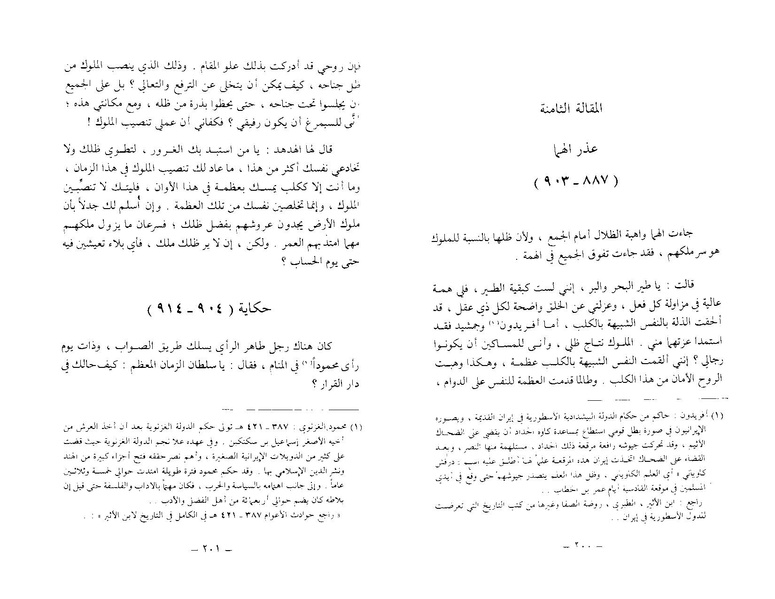 المقالة الثامنة
عذر الهما
( ٨٨٧ ـ ٩٠٣ )
جاءت الهما واهبة الظلال أمام الجمع ، ولأن ظلها بالنسبة للملوك
هو سر ملكهم ، فقد جاءت تفوق الجميع في الهمة .
قالت : يا طير البحر والبر ، إنني لست كبقية الطير ، فلي همة
عالية في مزاولة كل فعل ، وعزلتي عن الخلق واضحة لكل ذي عقل ، قد
ألحقت الذلة بالنفس الشبيهة بالكلب ، أما أفريدون(١) وجمشيد فقد
استمدا عزتهما مني . الملوك نتاج ظلي ، وأنى للمساكين أن يكونوا
رجالي ؟ إنني ألقمت النفس الشبيهة بالكلب عظمة ، وهكذا وهبت
الروح الأمان من هذا الكلب . وطالما قدمت العظمة للنفس على الدوام ،
(١) أفريدون : حاكم من حكام الدولة البيشدادية الأسطورية في إيران القديمة ، ويصوره
الإيرانيون في صورة بطل قومي استطاع بمساعدة كاوه الحداد أن يقضي على الضحاك
الأثيم ، وقد تحركت جيوشه رافعة مرقعة ذلك الحداد ، مستلهمة منها النصر ، وبعد
القضاء على الضحاك اتخذت إيران هذه المرقعة علماً لها أطلق عليه اسم : درفش
كاوياني « أي العلم الكاوياني ، وظل هذا العلم يتصدر جيوشهم حتى وقع في أيدي
المسلمين في موقعة القادسية أيام عمر بن الخطاب . .
راجع : ابن الأثير ، الطبري ، روضة الصفا وغيرها من كتب التاريخ التي تعرضت
للدول الأسطورية في إيران . .
ـ ٢٠٠ ـ
فإن روحي قد أدركت بذلك علو المقام . وذلك الذي ينصب الملوك من
ظل جناحه ، كيف يمكن أن يتخلى عن الترفع والتعالي ؟ بل على الجميع
أن يجلسوا تحت جناحه ، حتى يحظوا بذرة من ظله ، ومع مكانتي هذه ؛
أنّى للسيمرغ أن يكون رفيقي ؟ فكفاني أن عملي تنصيب الملوك !
قال لها الهدهد : يا من استبد بك الغرور ، لتطوي ظلك ولا
تخادعي نفسك أكثر من هذا ، ما عاد لك تنصيب الملوك في هذا الزمان ،
وما أنت إلا ككلب يمسك بعظمة في هذا الأوان ، فليتك لا تنصّبين
الملوك ، وإنما تخلصين نفسك من تلك العظمة . وإن أسلم لك جدلاً بأن
ملوك الأرض يجدون عروشهم بفضل ظلك ؛ فسرعان ما يزول ملكهم
مهما امتد بهم العمر . ولكن ، إن لا ير ظلك ملك ، فأي بلاء تعيشين فيه
حتى يوم الحساب ؟
حكاية ( ٩٠٤ ـ ٩١٤ )
كان هناك رجل طاهر الرأي يسلك طريق الصواب ، وذات يوم
رأى محموداً(١) في المنام ، فقال : يا سلطان الزمان المعظم : كيف حالك في
دار القرار ؟
(١) محمود الغزنوي : ٣٨٧ ـ ٤٢١ هـ تولى حكم الدولة الغزنوية بعد أن أخذ العرش من
أخيه الأصغر إسماعيل بن سبكتكين . وفي عهده علا نجم الدولة الغزنوية حيث قضت
على كثير من الدويلات الإيرانية الصغيرة ، وأهم نصر حققه فتح أجزاء كبيرة من الهند
ونشر الدين الإسلامي بها . وقد حكم محمود فترة طويلة امتدت حوالي خمسة وثلاثين
عاماً . وإلى جانب اهتمامه بالسياسة والحرب ، فكان مهتماً بالآداب والفلسفة حتى قيل إن
بلاطه كان يضم حوالي أربعمائة من أهل الفضل والأدب . .
« راجع حوادث الأعوام ٣٨٧ ـ ٤٢١ هـ في الكامل في التاريخ لابن الأثير » : .
ـ ٢٠١ ـ